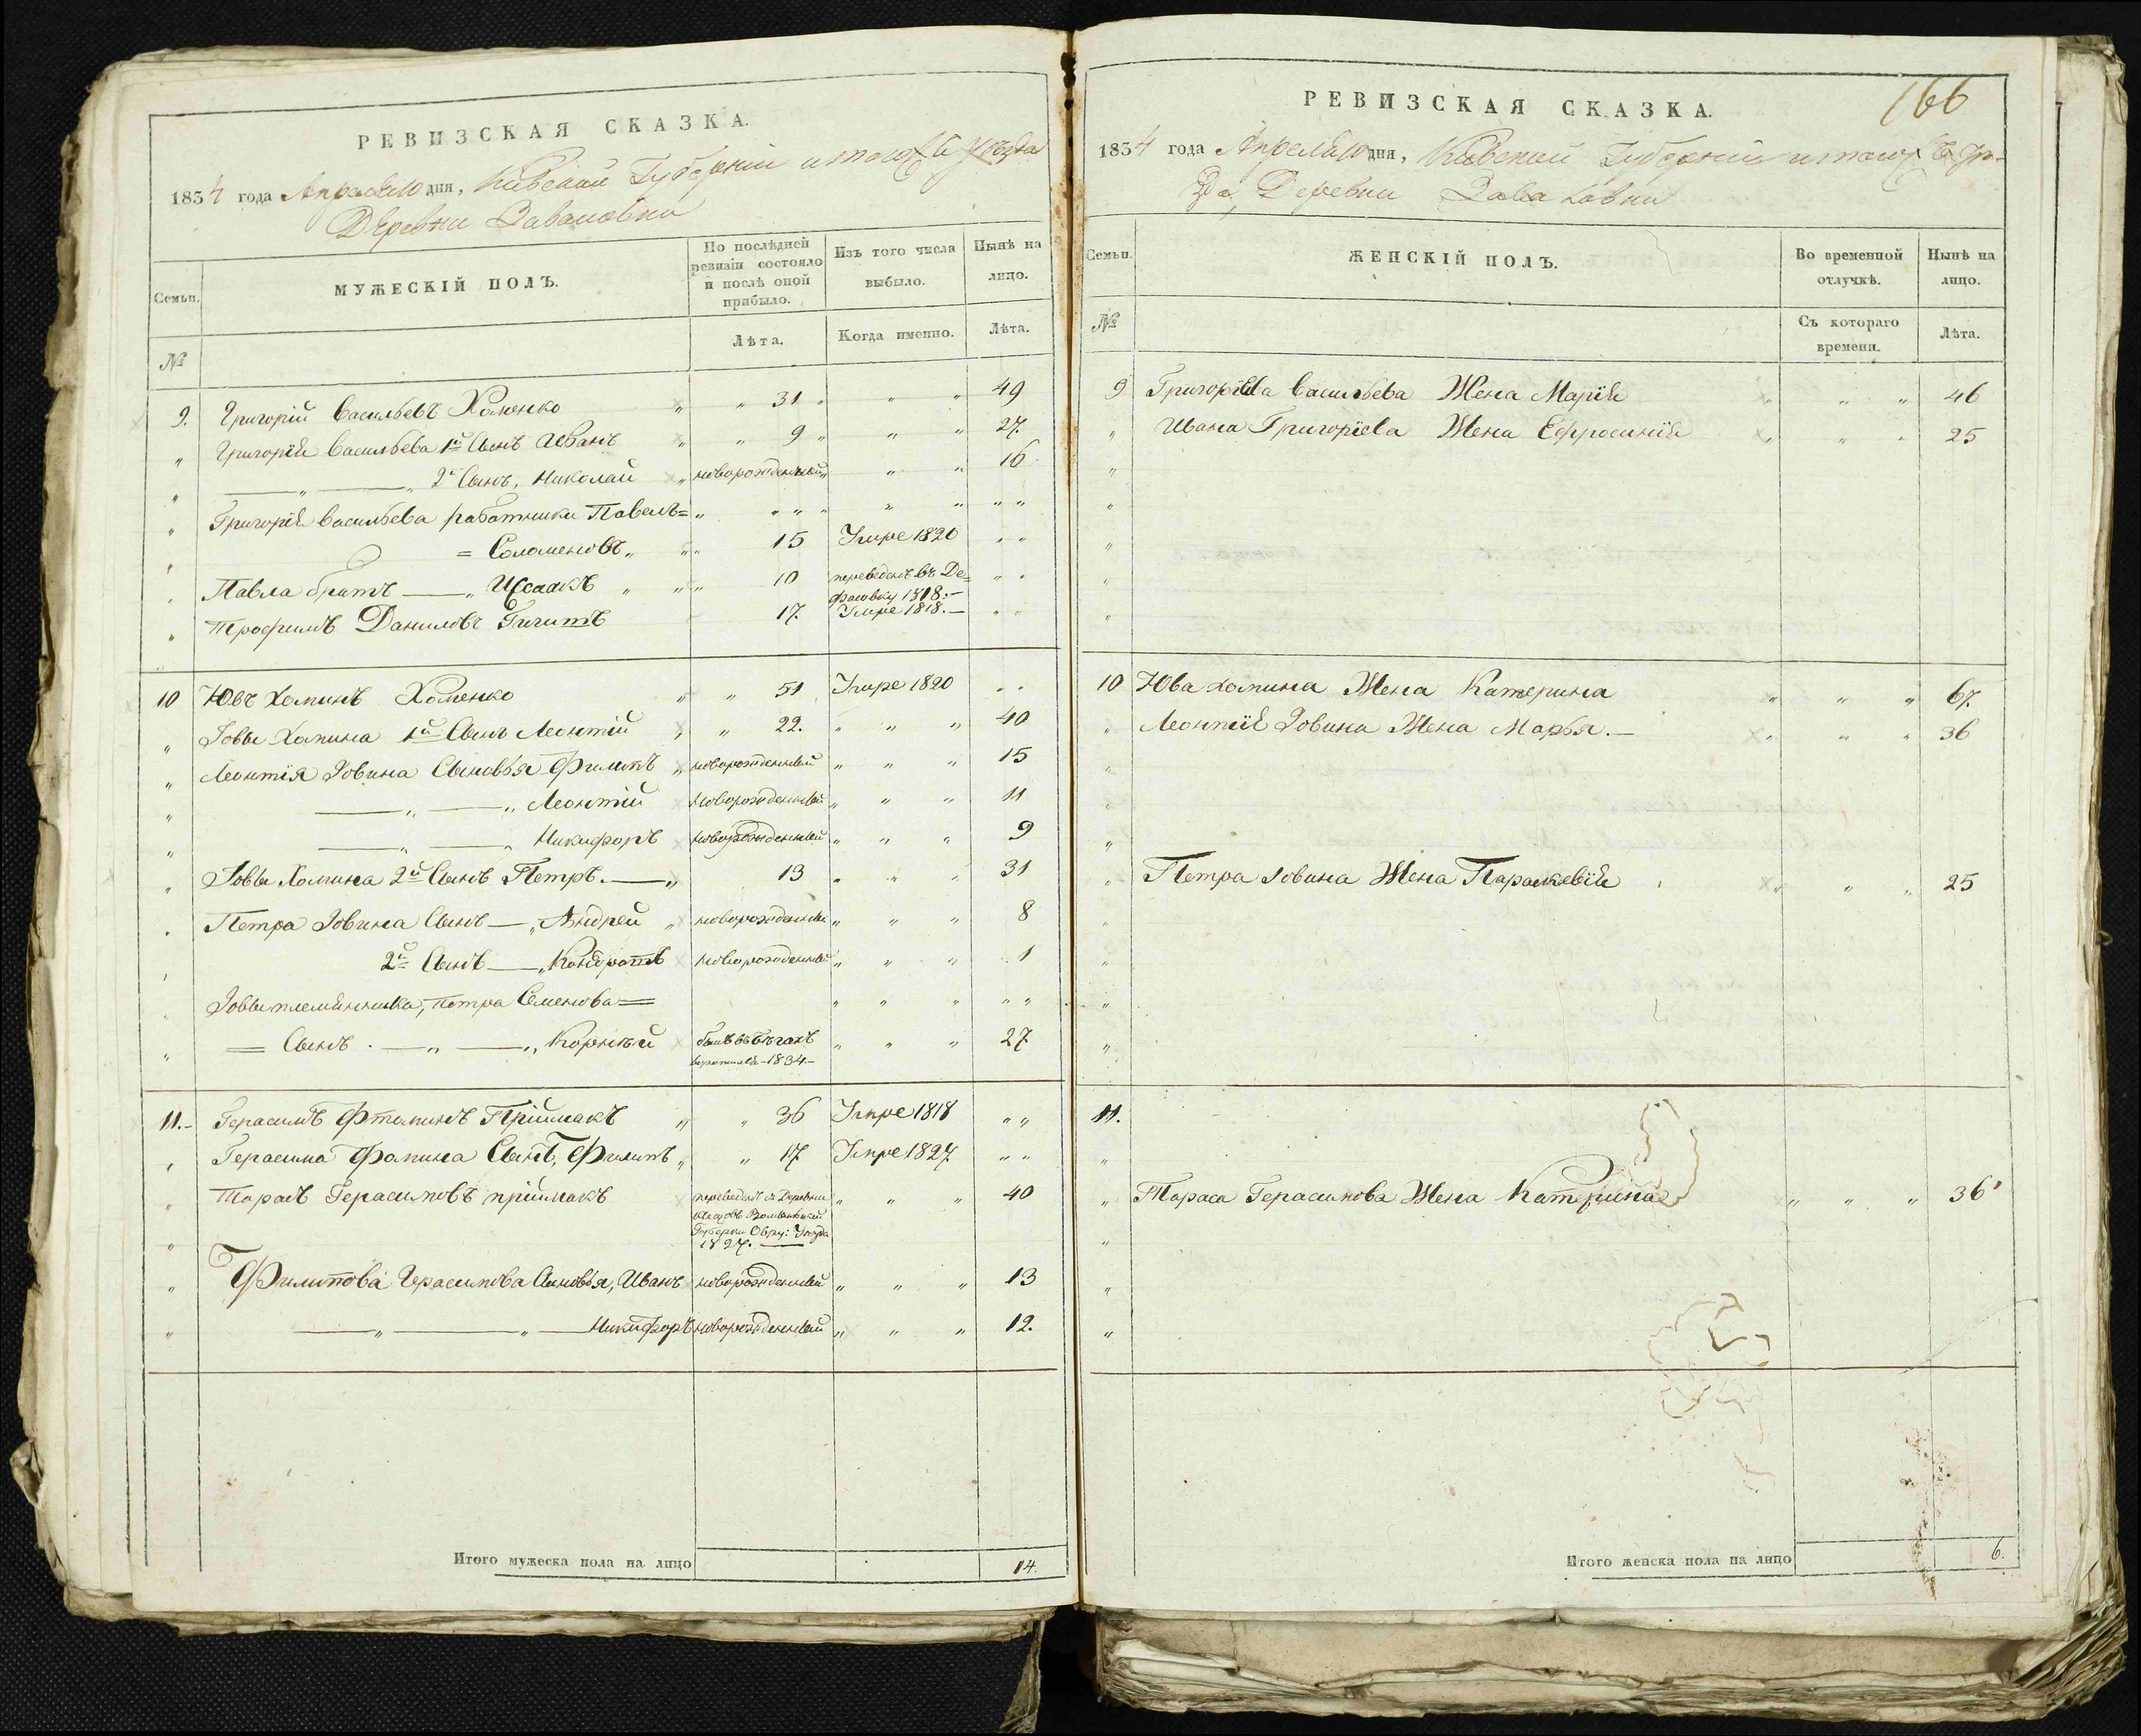 РЕВИЗСКАЯ СКАЗКА.
1834 года Апреля 10 дня, Кіевской Губерніи и того ж уезда
Деревни
Семьи.
МУЖЕСКІЙ ПОЛЪ.
По послѣдней ревизіи состояло и послѣ оной прибыло.
Изъ того числа выбыло.
Нынѣ на лицо.
№
Лѣта.
Когда именно.
Лѣта.
9. Григорій Васильевъ Хоменко " " 31 " " " 49
" Григорія Васильева 1й Сынъ Иванъ " " 9 " " " 27.
" —"— 2й Сынъ, Николай " новорожденный " " " 16
" Григорія Васильева работники Павелъ= " " " " " " " "
" = Соломеновъ " " 15 Умре 1820 " "
" Павла братъ —" Исаакъ " " 10 переведенъ въ Де=
" 1818.—
" Трофимъ Даниловъ 17. Умре 1818.— " "
10 Ювъ Хоминъ Хоменко " " 51 Умре 1820 " "
" Іовы Хомина 1й Сынъ Леонтій " " 22. " " " 40
" Леонтія Іовина Сыновья Филипъ " новорожденный " " " 15
" —"—" Леонтій новорожденный " " " 11
" —"—" Никифоръ новорожденный " " " 9
" Іовы Хомина 2й Сынъ Петръ.—" 13 " " " 31
" Петра Іовина Сынъ —" Андрей " новорожденный " " " 8
" 2й Сынъ —" Кондратъ новорожденный " " " 1
" Іовы племянника, Петра Семенова= " " " " "
" = Сынъ.—"—" Корнѣй былъ въ бѣгахъ " " " 27
1834.—
11.- Герасимъ Приймакъ " " 36 Умре 1818 " "
" Герасима Фомина Сынъ, Филипъ " " 17 Умре 1827 " "
" Тарасъ Герасимовъ приймакъ переведенъ Деревни " " " 40
Волынской
Губерни Овру: Уезда
" 1827.—
" Филипова Герасимова Сыновья, Иванъ новорожденный " " " 13
" —"—"— Никифоръ новорожденный " " " 12.
Итого мужеска пола на лицо 14.
166
РЕВИЗСКАЯ СКАЗКА.
1834 года Апреля 10 дня, Кіевской Губерніи и того ж Уе-
зда, Деревни
Семьи.
ЖЕНСКІЙ ПОЛЪ.
Во временной отлучкѣ.
Нынѣ на лицо.
№
Съ котораго времени.
Лѣта.
9 Григорія Васильева Жена Марія " " " 46
" Ивана Григоріева Жена Ефросинія " " " 25
10 Юва Хомина Жена Катерина " " " 67.
" Леонтія Іовина Жена Марья.— " " " 36
" Петра Іовина Жена Параскевія " " " 25
11.
" Тараса Герасимова Жена Катерина " " " 36
Итого женска пола на лицо 6.